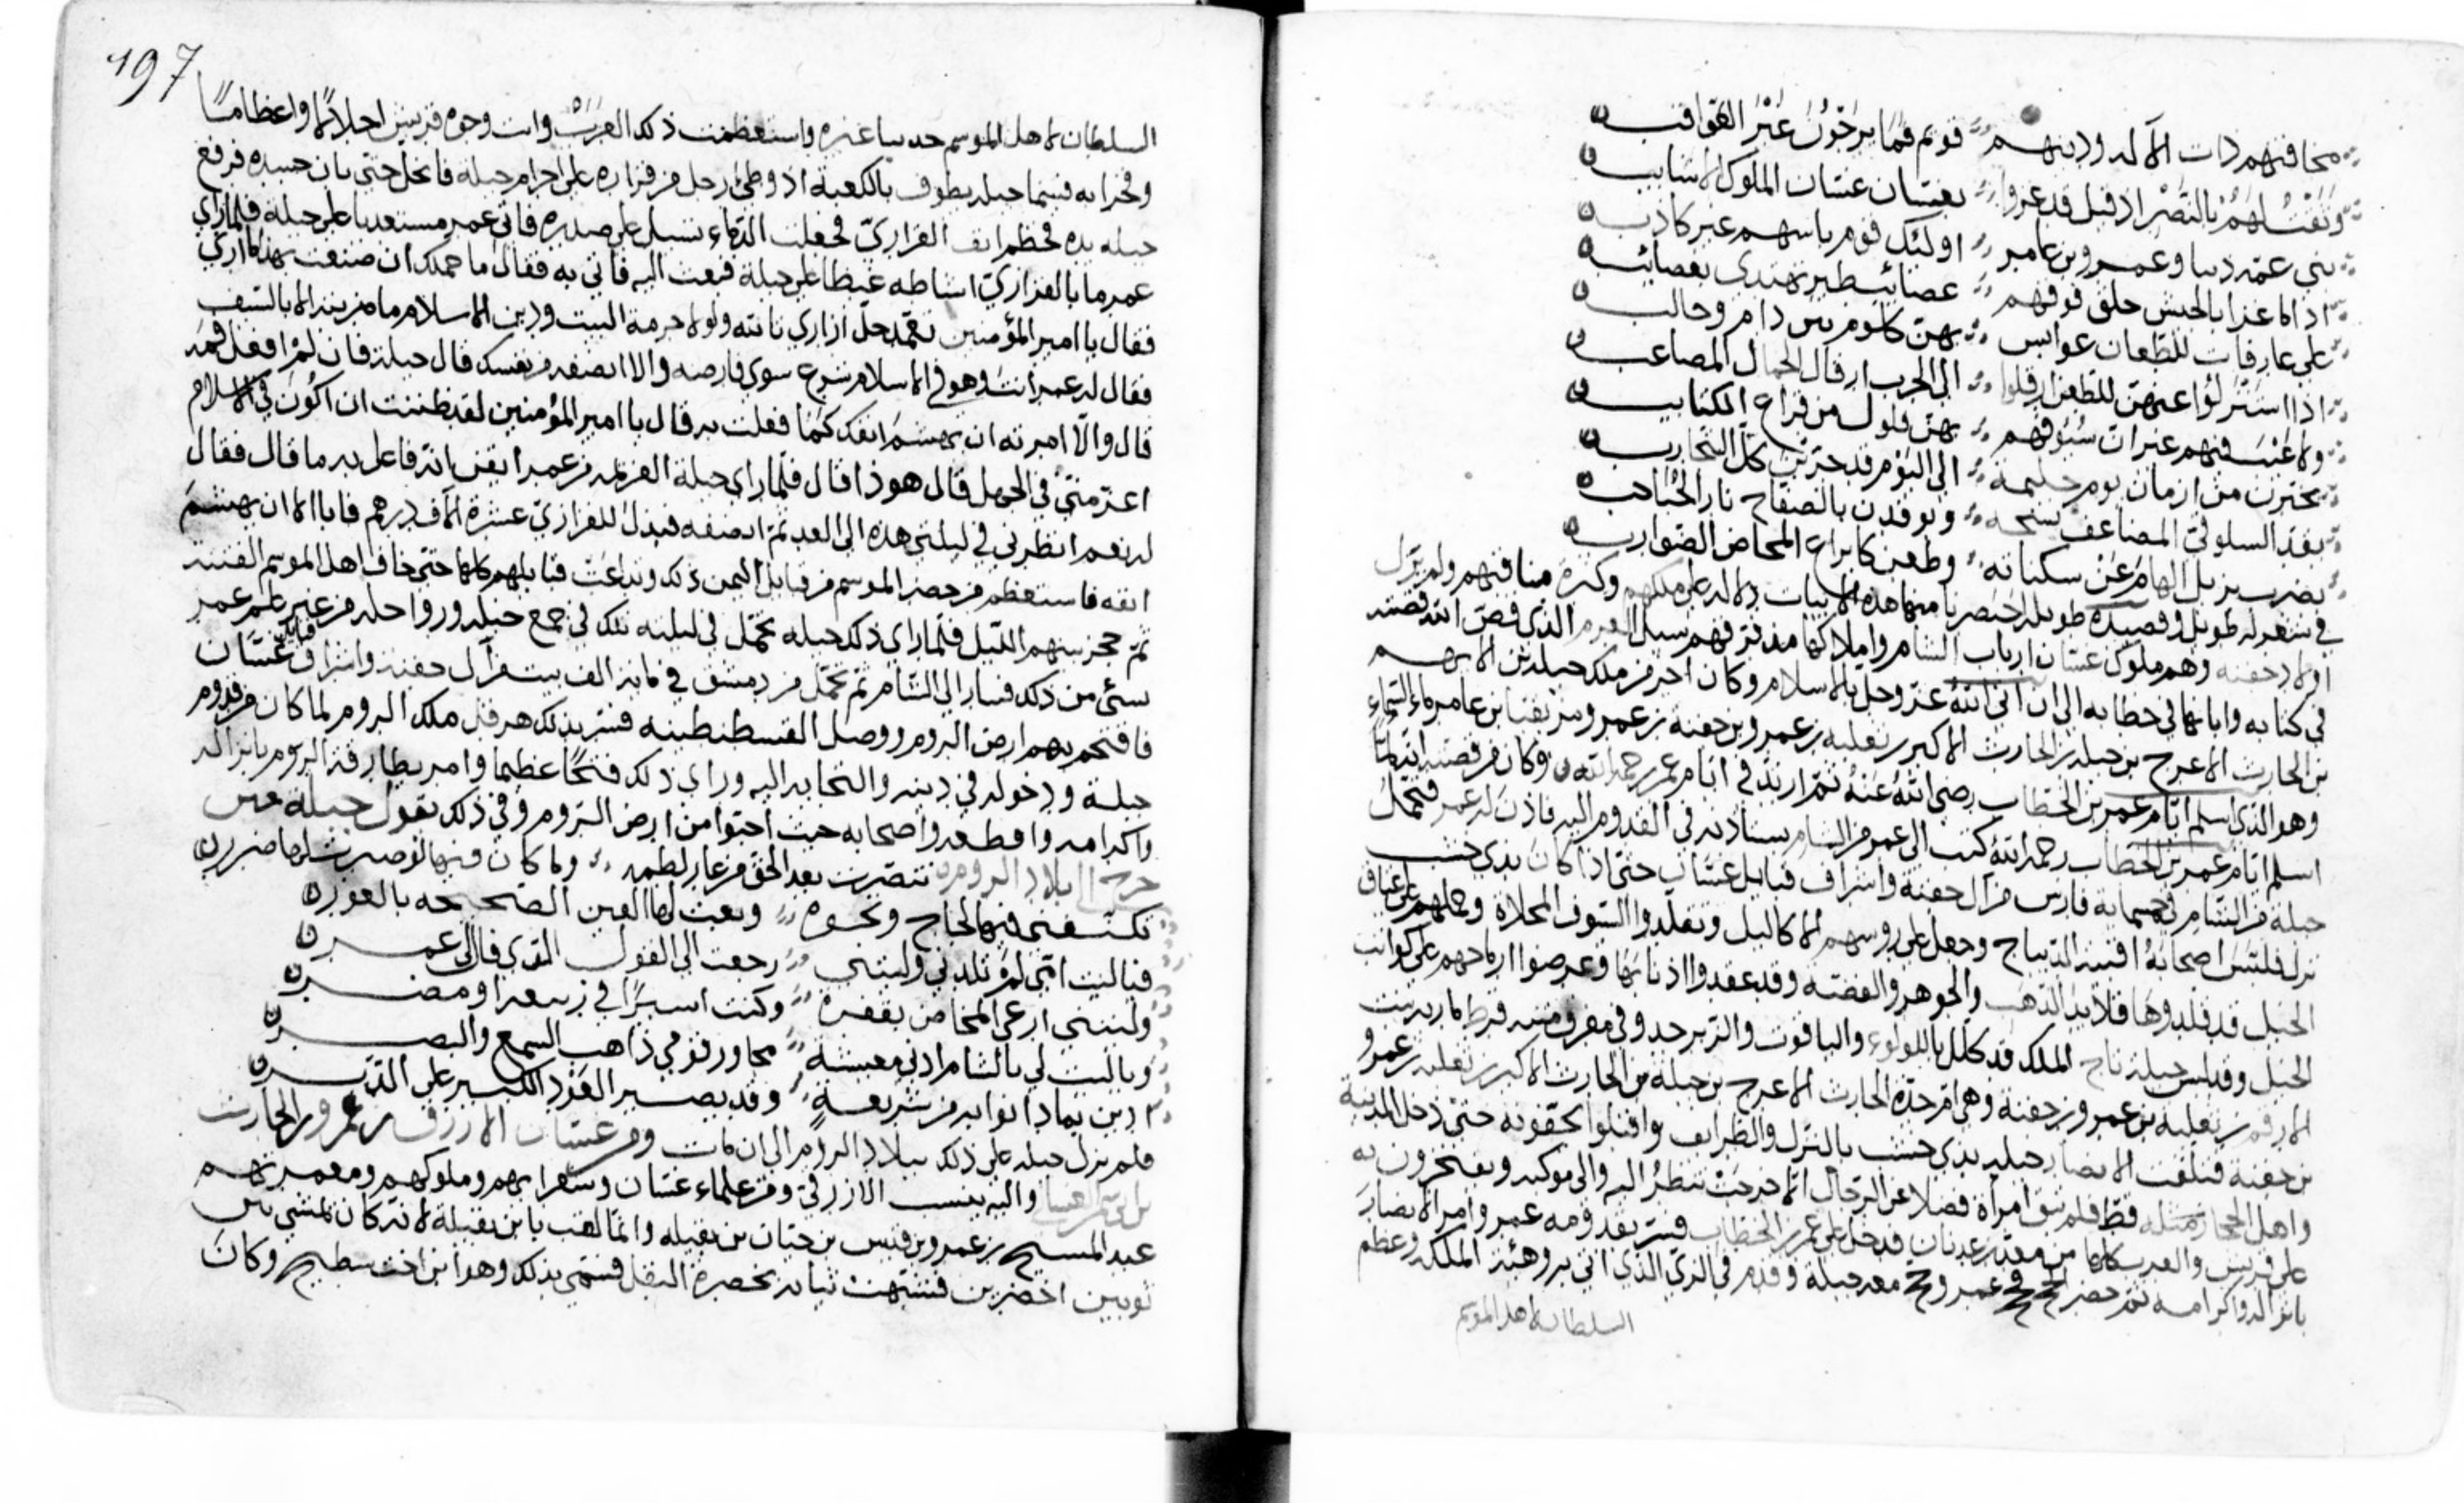 مخافتهم ذات الآله ودينهم قويم فما يرجون غير العواقب
وثقت لهم بالنصر اذ قيل قد غزوا بغسان غسان الملوك الاشايب
بني عمه دنيا وعمرو بن عامر اولئك قوم باسهم غير كاذب
اذا ما غزا بالجيش حلق فوقهم عصائب طير تهتدي بعصائب
على عارفات للطعان عوابس بهن كلوم بين دام وجالب
اذا استنزلوا عنهن للطعن ارقلوا الى الحرب ارقال الجمال المصاعب
ولا عيب فيهم غير ان سيوفهم بهن فلول من قراع الكتايب
تخيرن من ازمان يوم حليمة الى اليوم قد جربن كل التجارب
تقد السلوقي المضاعف نسجه وتوقدن بالصفاح نار الحباحب
بضرب يزيل الهام عن سكناته وطعن كايزاع المخاض الضوارب
في شعر له طويل وقصيدة طويله اختصرنا منها هذه الابيات دلاله على ملكهم وكثرة مناقبهم ولم يزل
اولاد جفنه وهم ملوك غسان ارباب الشام واملاكها منذ فرقهم سيل العرم الذي قص الله قصته
في كتابه وابانها في خطابه الى ان اتى الله عز وجل بالاسلام وكان اخر من ملك جبله بن الايهم
بن الحارث الاعرج بن جبله بن الحارث الاكبر بن ثعلبه بن عمرو بن جفنة بن عمرو مزيقيا بن عامر ماء السماء
وهو الذي اسلم ايام عمر بن الخطاب رضي الله عنه ثم ارتد في ايام عمر رحمه الله وكان من قصته انه لما
اسلم ايام عمر بن الخطاب رحمه الله كتب الى عمر من الشام يستاذنه في القدوم اليه فاذن له عمر فتحمل
جبله من الشام في خمسمايه فارس من آل جفنة واشراف قبايل غسان حتى اذا كان بذي خشب
نزل فلبس اصحابه اقبية الديباج وجعل على روسهم الاكاليل وتقلدوا السيوف المحلاة وحملهم على عتاق
الخيل قد قلدوها قلايد الذهب والجوهر والفضه وقد عقدوا اذنابها وعرضوا ارماحهم على كواثب
الخيل وقد لبس جبلة تاج الملك قد كلل باللولوء والياقوت والزبرجد وفي مفرق منه قرط ماريه بنت
الارقم بن ثعلبه بن عمرو بن جفنة وهي ام جده الحارث الاعرج بن جبلة بن الحارث الاكبر بن ثعلبه بن عمرو
بن جفنه فتلقت الانصار جبله بذي خشب بالنزل والظرايف واقبلوا يحفونه حتى دخل المدينة
واهل الحجاز مثله قط فلم تبق امرأة فضلا عن الرجال الا خرجت تنظر اليه والى موكبه ويفتخرون به
على قريش والعرب كلها من معد بن عدنان فدخل على عمر بن الخطاب فسر بقدومه عمر وامر الانصار
بانزاله واكرامه ثم حضر الحج فحج عمر وحج معه جبلة وقدم في الزي الذي اتى به وهيئة الملك وعظم
السلطان لاهل الموسم
197
السلطان لاهل الموسم حدبيا غيره واستعظمت ذلك العرب واتت وجوه قريش اجلالا واعظاما
وفخرا به فبينما جبله يطوف بالكعبة اذ وطئ رجل من فزاره على احرام جبلة فانحل حتى بان جسده فرفع
جبله يده فحطم انف الفزاري فجعلت الدماء تسيل على صدره فاتى عمر مستعديا على جبلة فلما راى
عمر ما بالفزاري استشاط غيظا على جبلة فبعث اليه فاتي به فقال ما حملك ان صنعت بهذا ما ارى
فقال يا امير المؤمنين تعمد حل ازاري فاتته ولولا حرمة البيت ودين الاسلام ما مزيته الا بالسيف
فقال له عمر انت وهو في الاسلام شرع سوى فارضه والا انصفه من نفسك قال جبلة فان لم افعل فمه
قال والا امرته ان يهشم انفك كما فعلت به قال يا امير المؤمنين لقد ظننت ان اكون في الاسلام
اعز مني في الجهل قال هو ذا قال فلما راى جبلة العزيمه من عمر ايقن انه فاعل به ما قال فقال
له نعم انظرني في ليلتي هذه الى الغد ثم انصفه فبذل للفزاري عشرة آلاف درهم فابا الا ان يهشم
انفه فاستعظم من حضر الموسم من قبايل اليمن ذلك وتداعت قبايلهم كلها حتى خاف اهل الموسم الفتنة
ثم حجز بينهم الليل فلما راى ذلك جبله تحمل في ليلته تلك في جمع خيله ورواحله من غير علم عمر
بشئ من ذلك فسار الى الشام ثم تحمل من دمشق في ثمانية الف بيت من آل جفنه واشراف قبائل غسان
فاقتحم بهم ارض الروم ووصل القسطنطينه فسر بذلك هرقل ملك الروم لما كان من قدوم
جبلة ودخوله في دينه والتجايه اليه وراى ذلك فتحا عظيما وامر بطارقة الروم بانزاله
واكرامه واقطعه واصحابه حيث احبوا من ارض الروم وفي ذلك يقول جبلة حين
خرج الى بلاد الروم تنصرت بعد الحق من عار لطمه وما كان فيها لو صبرت لها ضرر
تكنفني فيها لجاج ونخوه وبعت لها العين الصحيحه بالعور
فياليت امي لم تلدني وليتني رجعت الى القول الذي قال لي عمر
وليتني ارعى المخاض بقفره وكنت اسيرا في ربيعه او مضر
وياليت لي بالشام ادنى معيشة مجاور قومي ذاهب السمع والبصر
ادين بما دانوا به من شريعة وقد يصبر العود الكبير على الدبر
فلم يزل جبله على ذلك ببلاد الروم الى ان مات ومن غسان الازرق بن عمرو بن الحارث
والیه ینسب الازرقي ومن علماء غسان وشعرايهم وملوكهم ومعمريهم
عبد المسيح بن عمرو بن قيس بن حيان بن بقيله وانما لقب يا بن بقيلة لانه كان يمشي بين
ثوبين اخضرين فشبهت ثيابه بخضرة البقل فسمي بذلك وهو ابن اخت سطيح وكان